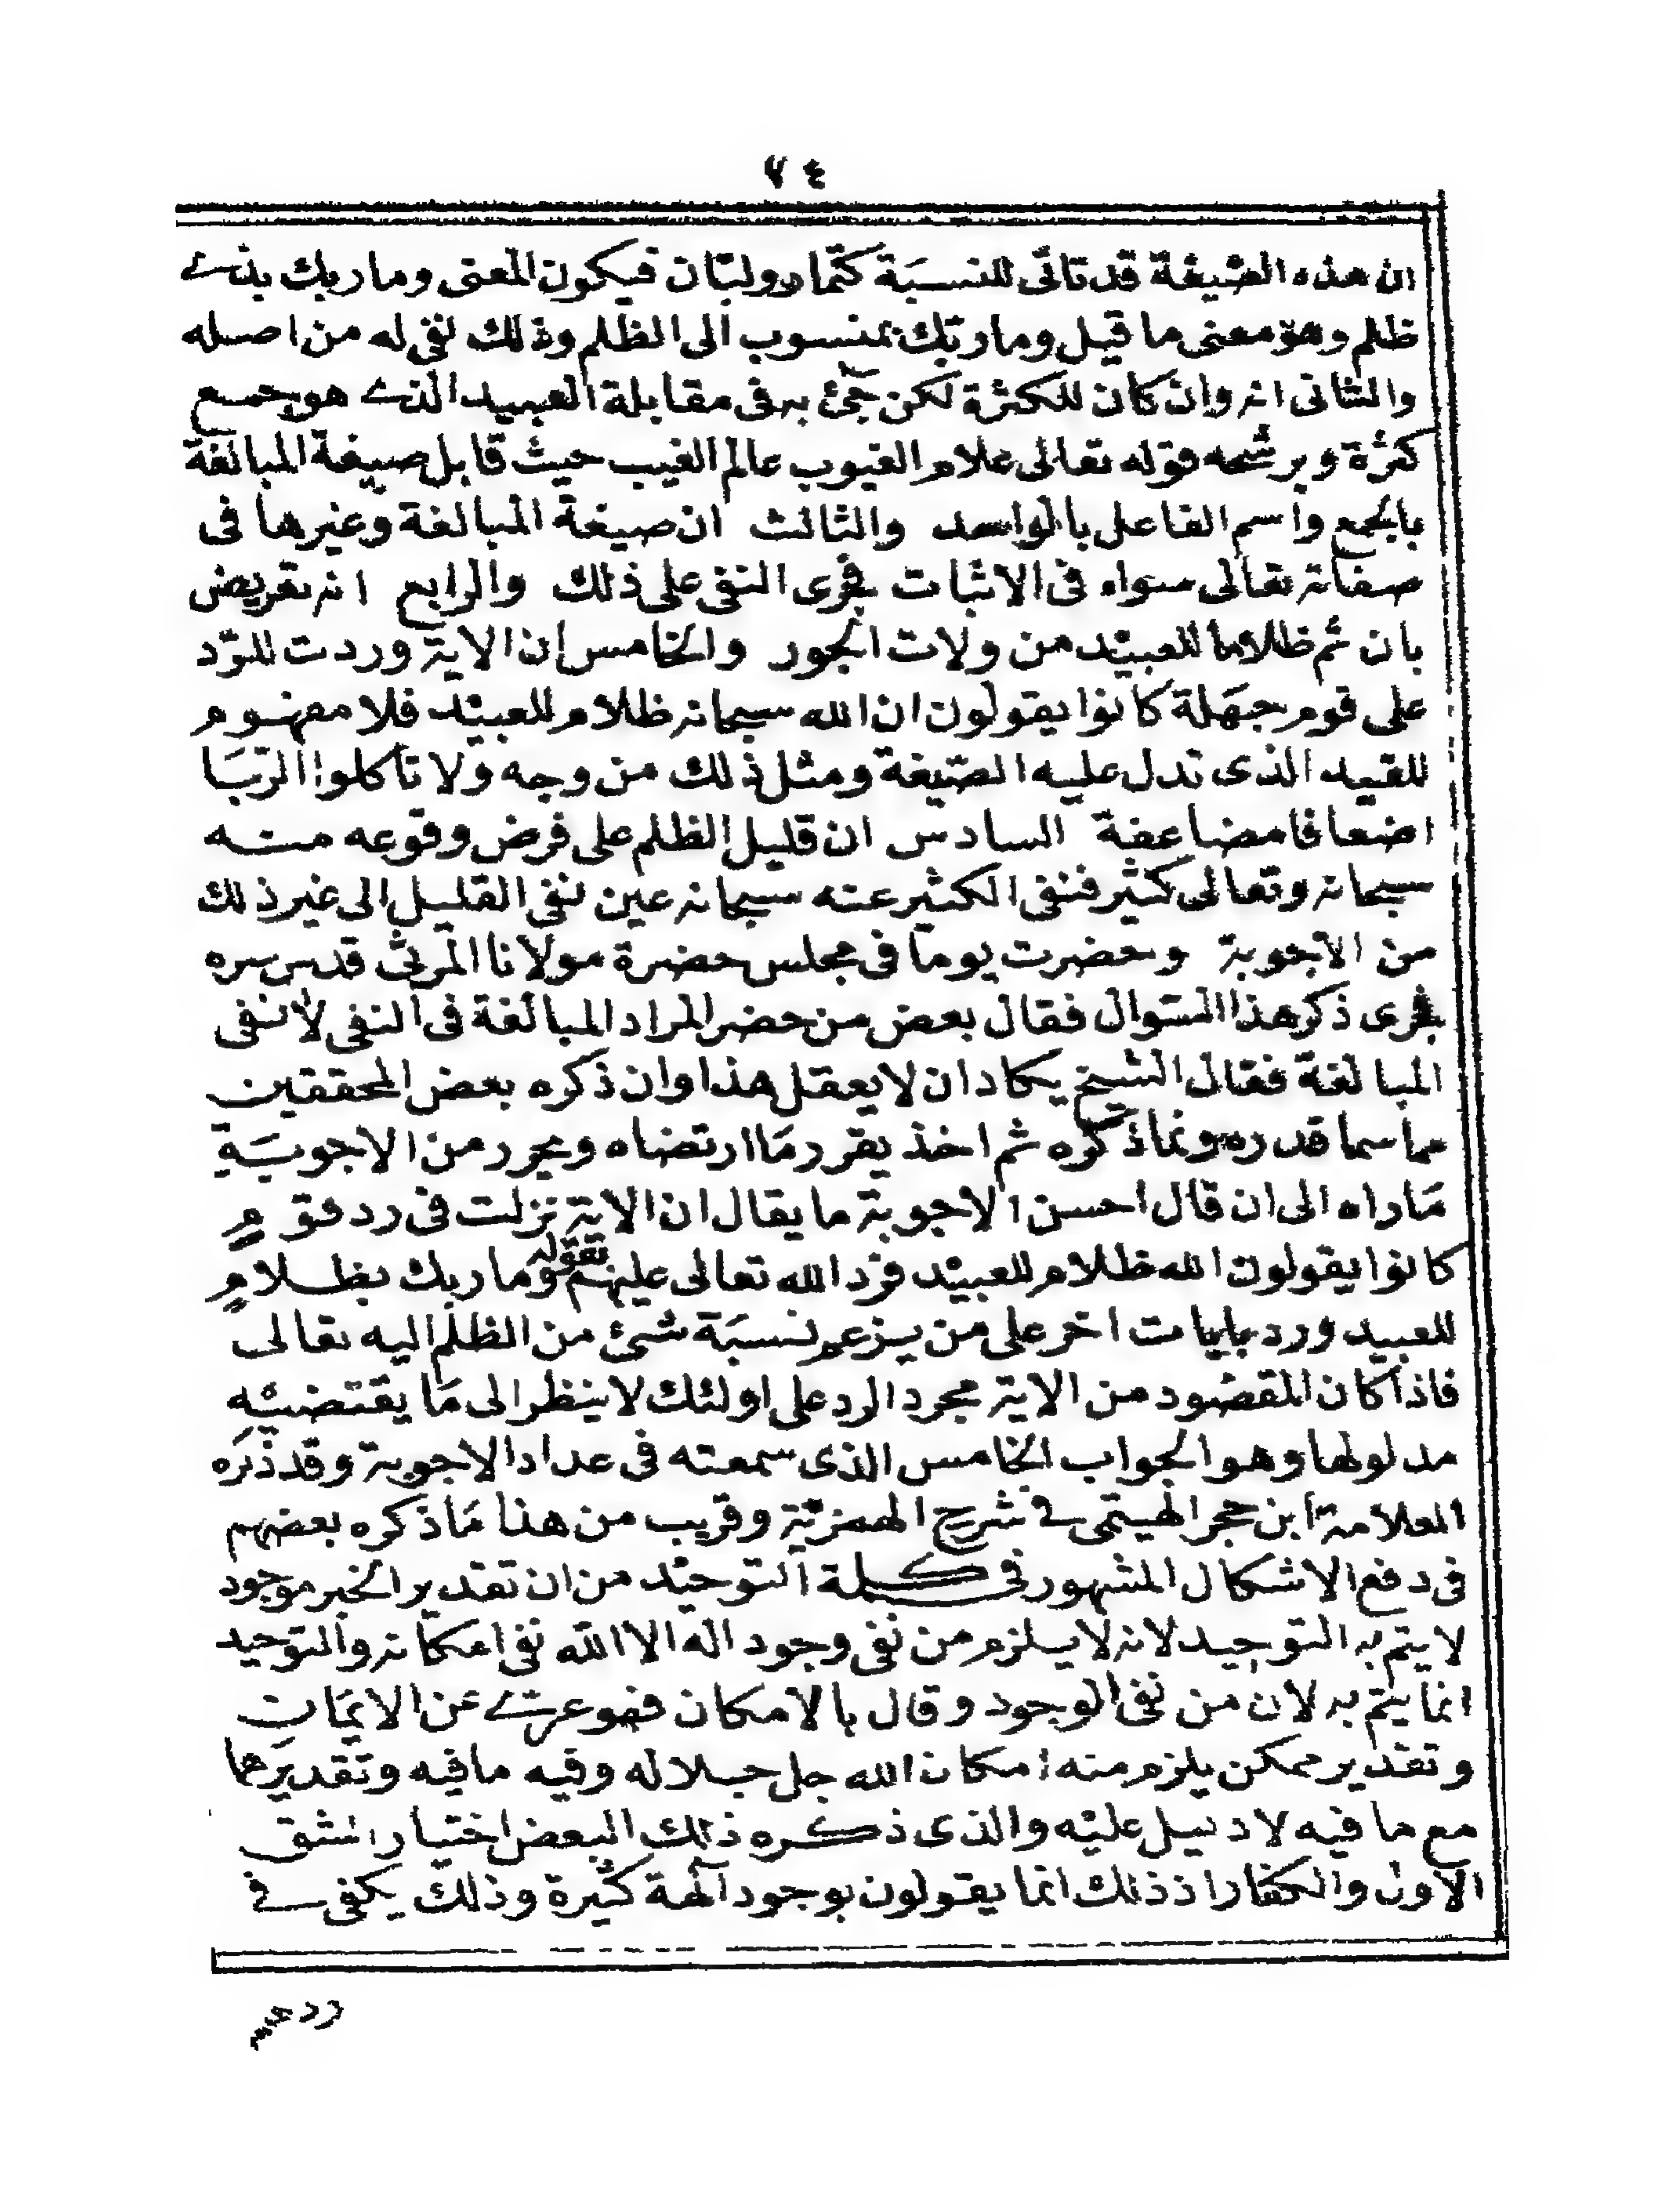 ٧٤
ان هذه الصيغة قد تاتى للنسبَة كتمار ولبّان فيكون المعنى وما ربك بذے
ظلم وهو معنى ما قيل وما ربّك بمنسوب الى الظلم وذلك نفى له من اصله
والثانى انه وان كان للكثرة لكن جئ به فى مقابلة العبيد الذے هو جمع
كثرة ويرشحه قوله تعالى علام الغيوب عالم الغيب حيث قابل صيغة المبالغة
بالجمع واسم الفاعل بالواحد والثالث ان صيغة المبالغة وغيرها فى
صفاته تعالى سواء فى الاثبات فجرى النفى على ذلك والرابع انه تعريض
بان ثم ظلاما للعبيْد من ولات الجور والخامس ان الاية وردت للرّد
على قوم جهَلة كانوا يقولون ان الله سبحانه ظلام للعبيْد فلا مفهوم
للقيد الذى تدل عليه الصّيغة ومثل ذلك من وجه ولا تأكلوا الرّبَا
اضعافا مضاعفة السادس ان قليل الظلم على فرض وقوعه منه
سبحانه وتعالى كثير فنفى الكثير عنه سبحانه عين نفى القليل الى غير ذلك
من الاجوبة وحضرت يوما فى مجلس حضرة مولانا المرثى قدس سره
فجرى ذكر هذا السّوال فقال بعض من حضر المراد المبالغة فى النفى لا نفى
المبالغة فقال الشيخ يكاد ان لا يعقل هذا وان ذكره بعض المحققين
مما سما قدره ونما ذكره ثم اخذ يقرر مَا ارتضاه ويحرر من الاجوبَةِ
مَاراه الى ان قال احسن الاجوبة ما يقال ان الاية نزلت فى رد قومٍ
كانوا يقولون الله ظلام للعبيْد فرّد الله تعالى عليهم بقوله وما ربك بظلامٍ
للعبيد ورد بايات اخر على من يزعم نسبَة شئ من الظلم اليه تعالى
فاذا كان المقصُود من الاية مجرد الرد على اولئك لا ينظر الى مَا يقتضيْه
مدلولها وهو الجواب الخامس الذى سمعته فى عداد الاجوبة وقد ذكره
العلامة ابن حجر الهيتمى فے شرح الهمزيّة وقريب من هذا مَا ذكره بعضهم
فى دفع الاشكال المشهور فى كلمة التوحيْد من ان تقدير الخبر موجود
لا يتم به التوحيد لانه لا يلزم من نفى وجود اله الا الله نفى امكانه والتوحيد
انما يتم به لان من نفى الوجود وقال بالامكان فهو عرے عن الايمَانِ
وتقدير ممكن يلزم منه امكان الله جل جلاله وفيه ما فيه وتقديرهما
مع ما فيه لا دليل عليْه والذى ذكره ذلك البعض اختيار الشق
الاول والكفار اذ ذلك انما يقولون بوجود آلهة كثيرة وذلك يكفى فے
ردعم